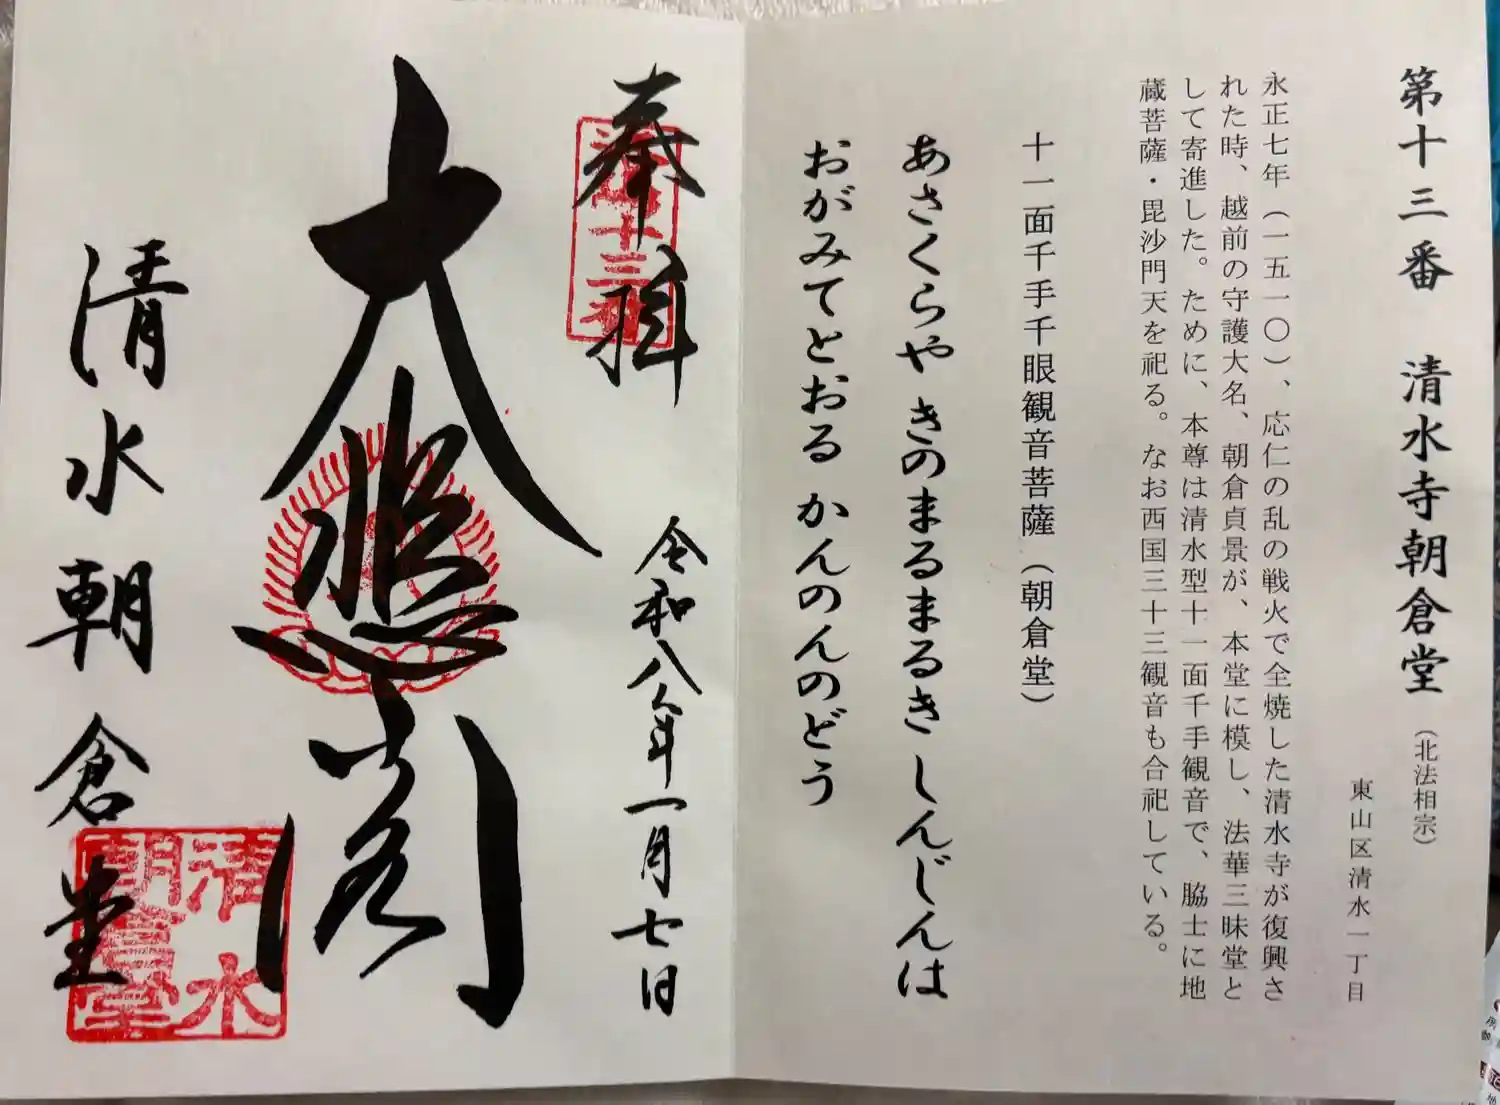 第十三番 清水寺朝倉堂(北法相宗)
東山区清水一丁目
永正七年(一五一〇)、応仁の乱の戦火で全焼した清水寺が復興さ
れた時、越前の守護大名、朝倉貞景が、本堂に模し、法華三昧堂と
して寄進した。ために、本尊は清水型十一面千手観音で、脇士に地
蔵菩薩・毘沙門天を祀る。なお西国三十三観音も合祀している。
十一面千手千眼観音菩薩(朝倉堂)
あさくらや きのまるまるき しんじんは
おがみてとおる かんのんのどう
奉拝
令和八年一月七日
大悲閣
清水朝倉堂
清水
朝倉堂